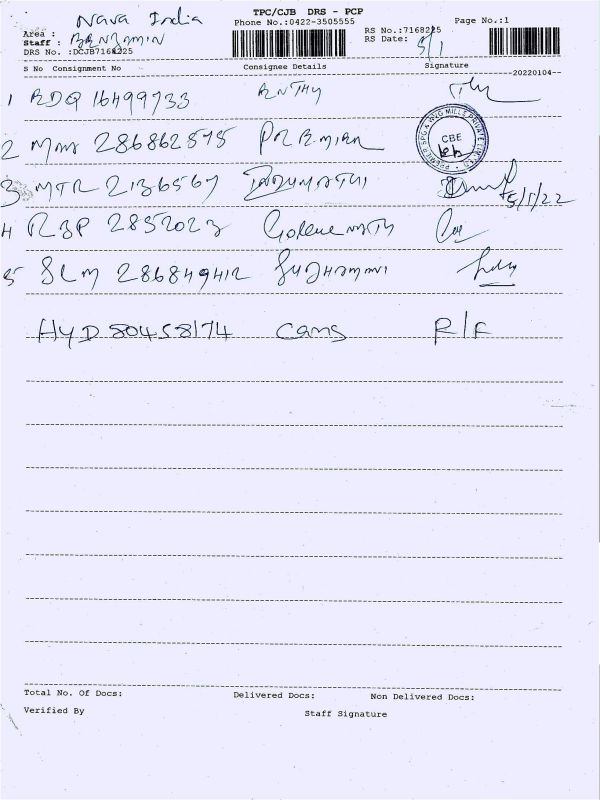 TPC/CJB DRS - PCP
Nava India
Phone No.:0422-3505555
Page No.:1
Area :
RS No.:7168225
Staff : BENJAMIN
RS Date: 5/1
DRS No. :DCJB7168225
S No Consignment No Consignee Details Signature
--20220104--
1 RDQ 16499733
2 286862575 PREMIER
PREMIER SPG & WVG MILLS PRIVATE LIMITED CBE
3 MTR 2136567 INDUMATHI 5/1/22
4 2852023
5 SLM 286849412
HYD 80458174 cams R/F
Total No. Of Docs: Delivered Docs: Non Delivered Docs:
Verified By Staff Signature